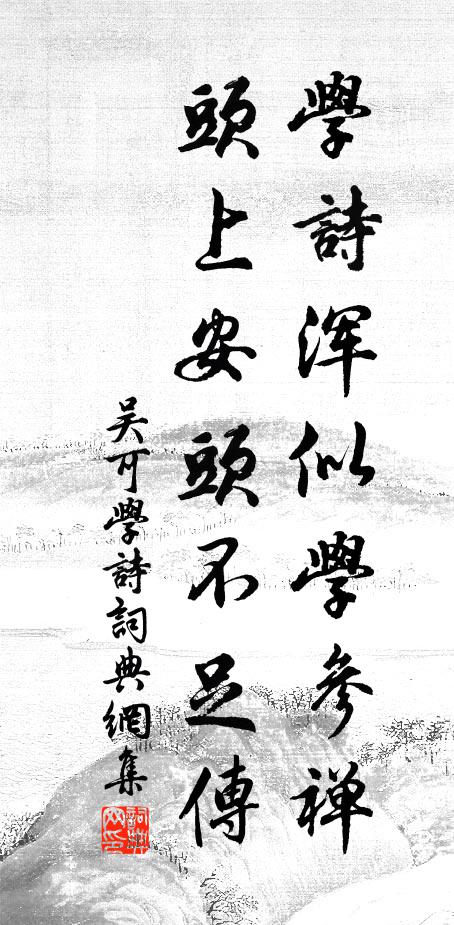 學詩渾似學參禅
頭上安頭不足傳
吴可學詩詞典網集